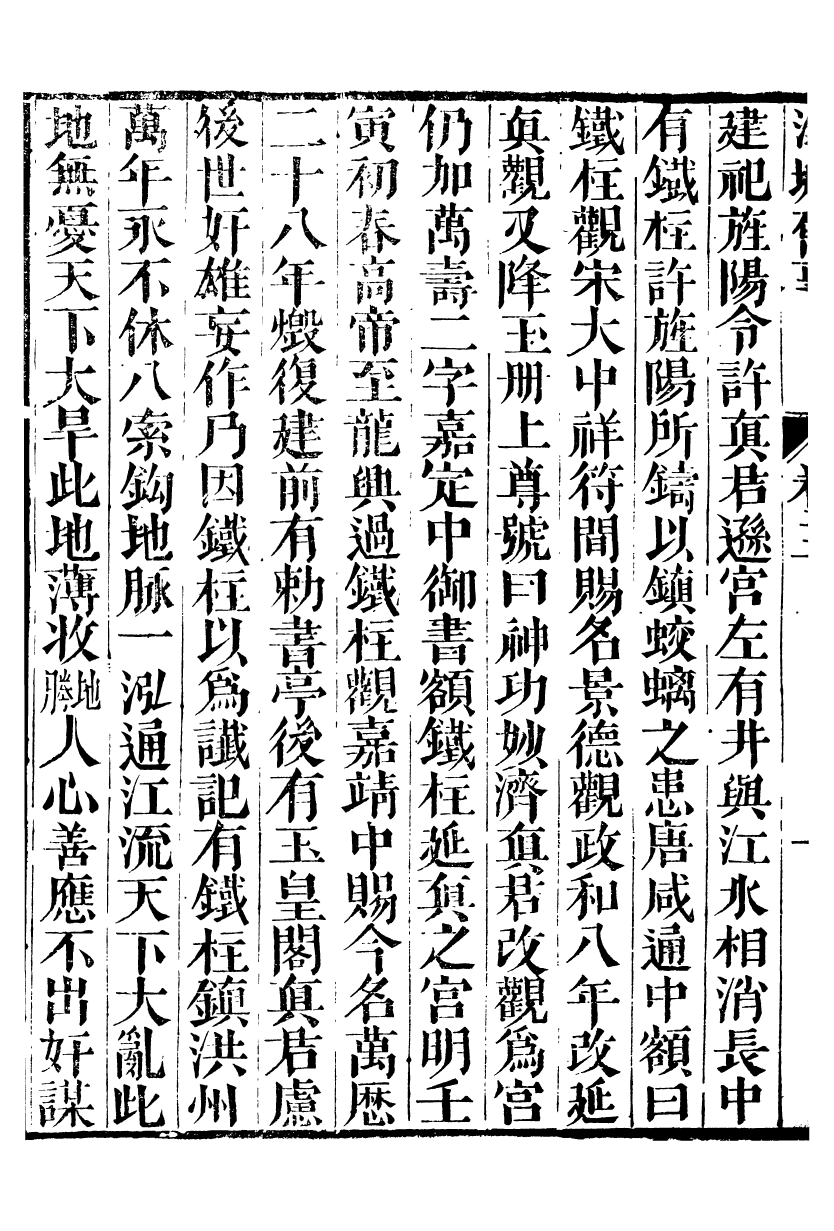 建祀旌陽令許眞君遜宮左有井與江水相消長中
有鐵柱許旌陽所鑄以鎮蛟螭之患唐咸通中額曰
鐵柱觀宋大中祥符間賜名景德觀政和八年改延
眞觀又降玉册上尊號曰神功妙濟眞君改觀爲宮
仍加萬壽二字嘉定中御書額鐵柱延眞之宮明壬
寅初春高帝至龍興過鐵柱觀嘉靖中賜今名萬厯
二十八年燬復建前有勅書亭後有玉皇閣眞君慮
後世奸雄妄作乃因鐵柱以爲讖記有鐵柱鎮洪州
萬年永不休八索鈎地脉一泓通江流天下大亂此
地無憂天下大旱此地薄收地勝人心善應不出奸謀